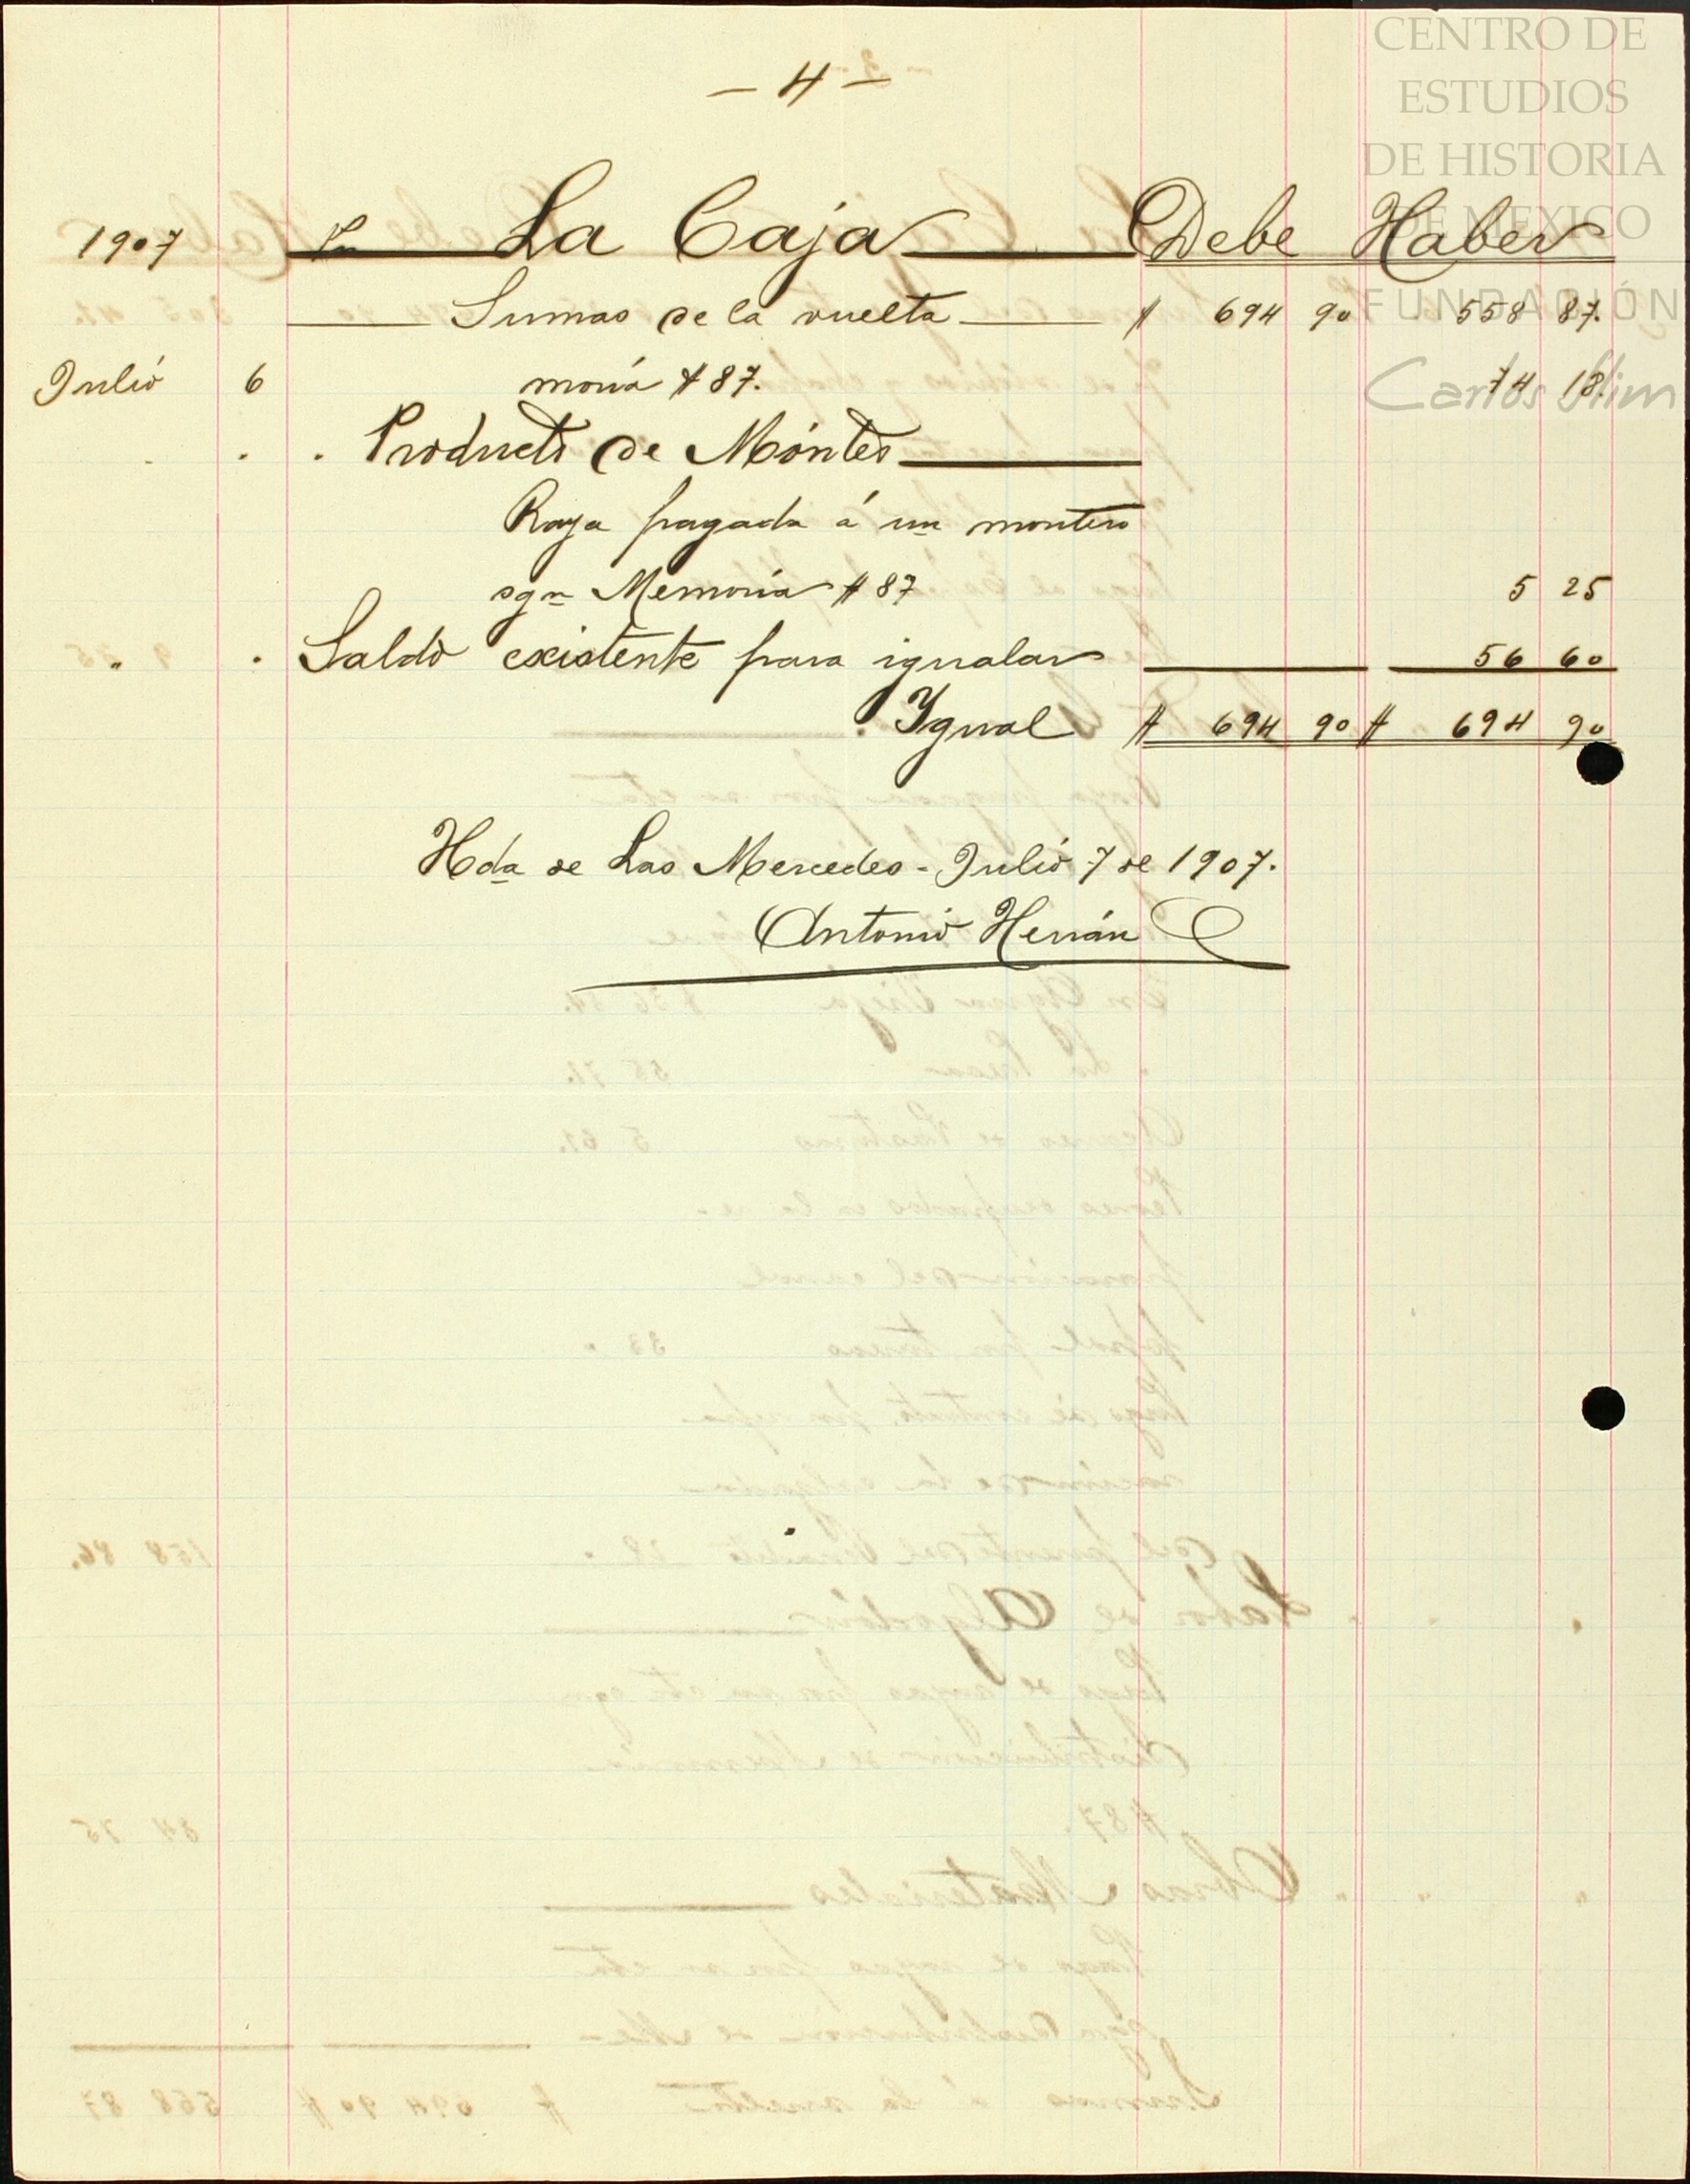 CENTRO DE
ESTUDIOS
DE HISTORIA
DE MEXICO
FUNDACIÓN
Carlos Slim
- 4 -
1907 La Caja Debe Haber
Sumas de la vuelta $ 694 90 558 87.
Julio 6 moria # 87. 74 18.
" " " Producto de Móntes
Raya pagada á un montero
sgn Memoria # 87 5 25
" " Saldo existente para igualar 56 60
Ygual $ 694 90 $ 694 90
Hda de Las Mercedes - Julio 7 de 1907.
Antonio Herrán